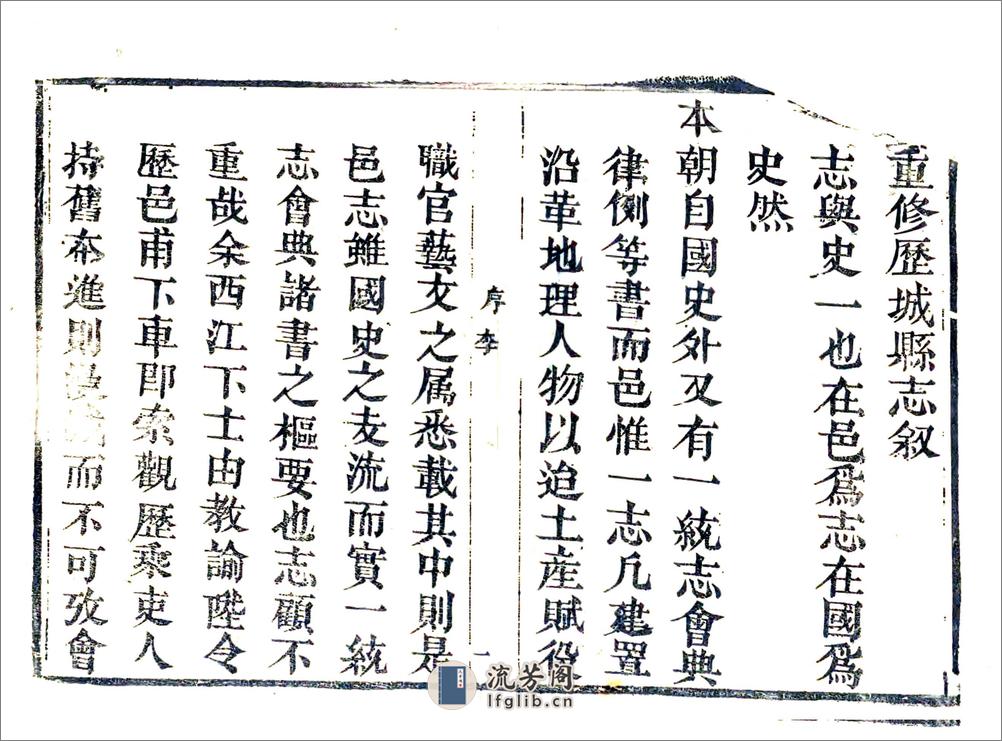 重修歷城縣志叙
志與史一也在邑爲志在國爲
史然
本朝自國史外又有一統志會典
律例等書而邑惟一志凡建置
沿革地理人物以迨土産賦役
序李
一
職官藝文之属悉載其中則是
邑志雖國史之支流而實一統
志會典諸書之樞要也志顧不
重哉余西江下士由教諭陞令
歷邑甫下車即索觀歷乘吏人
持舊本進則而不可攷會
流芳阁
lfglib.cn